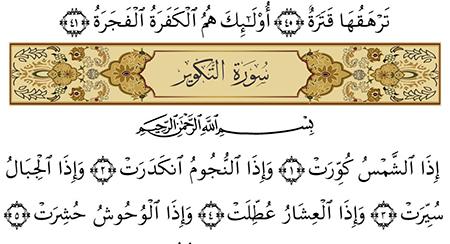 تَرْهَقُهَا قَتَرَةٌ ﴿٤٠﴾ أُوْلَٰٓئِكَ هُمُ ٱلْكَفَرَةُ ٱلْفَجَرَةُ ﴿٤١﴾
سُورَةُ التَّكْوِيرِ
بِسْمِ اللَّهِ الرَّحْمَٰنِ الرَّحِيمِ
إِذَا ٱلشَّمْسُ كُوِّرَتْ ﴿١﴾ وَإِذَا ٱلنُّجُومُ ٱنكَدَرَتْ ﴿٢﴾ وَإِذَا ٱلْجِبَالُ
سُيِّرَتْ ﴿٣﴾ وَإِذَا ٱلْعِشَارُ عُطِّلَتْ ﴿٤﴾ وَإِذَا ٱلْوُحُوشُ حُشِرَتْ ﴿٥﴾